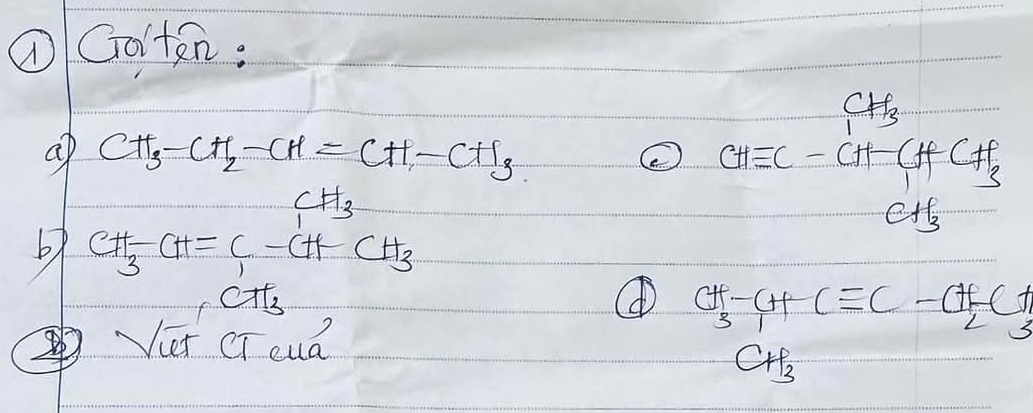 ① Gọi tên :
a) CH₃-CH₂-CH=CH-CH₃
CH₃
b) CH₃-CH=C-CH-CH₃
CH₃
CH₃
c) CH≡C-CH-CH-CH₃
CH₃
d) CH₃-CH-C≡C-CH₂-CH₃
CH₃
② Viết CT của